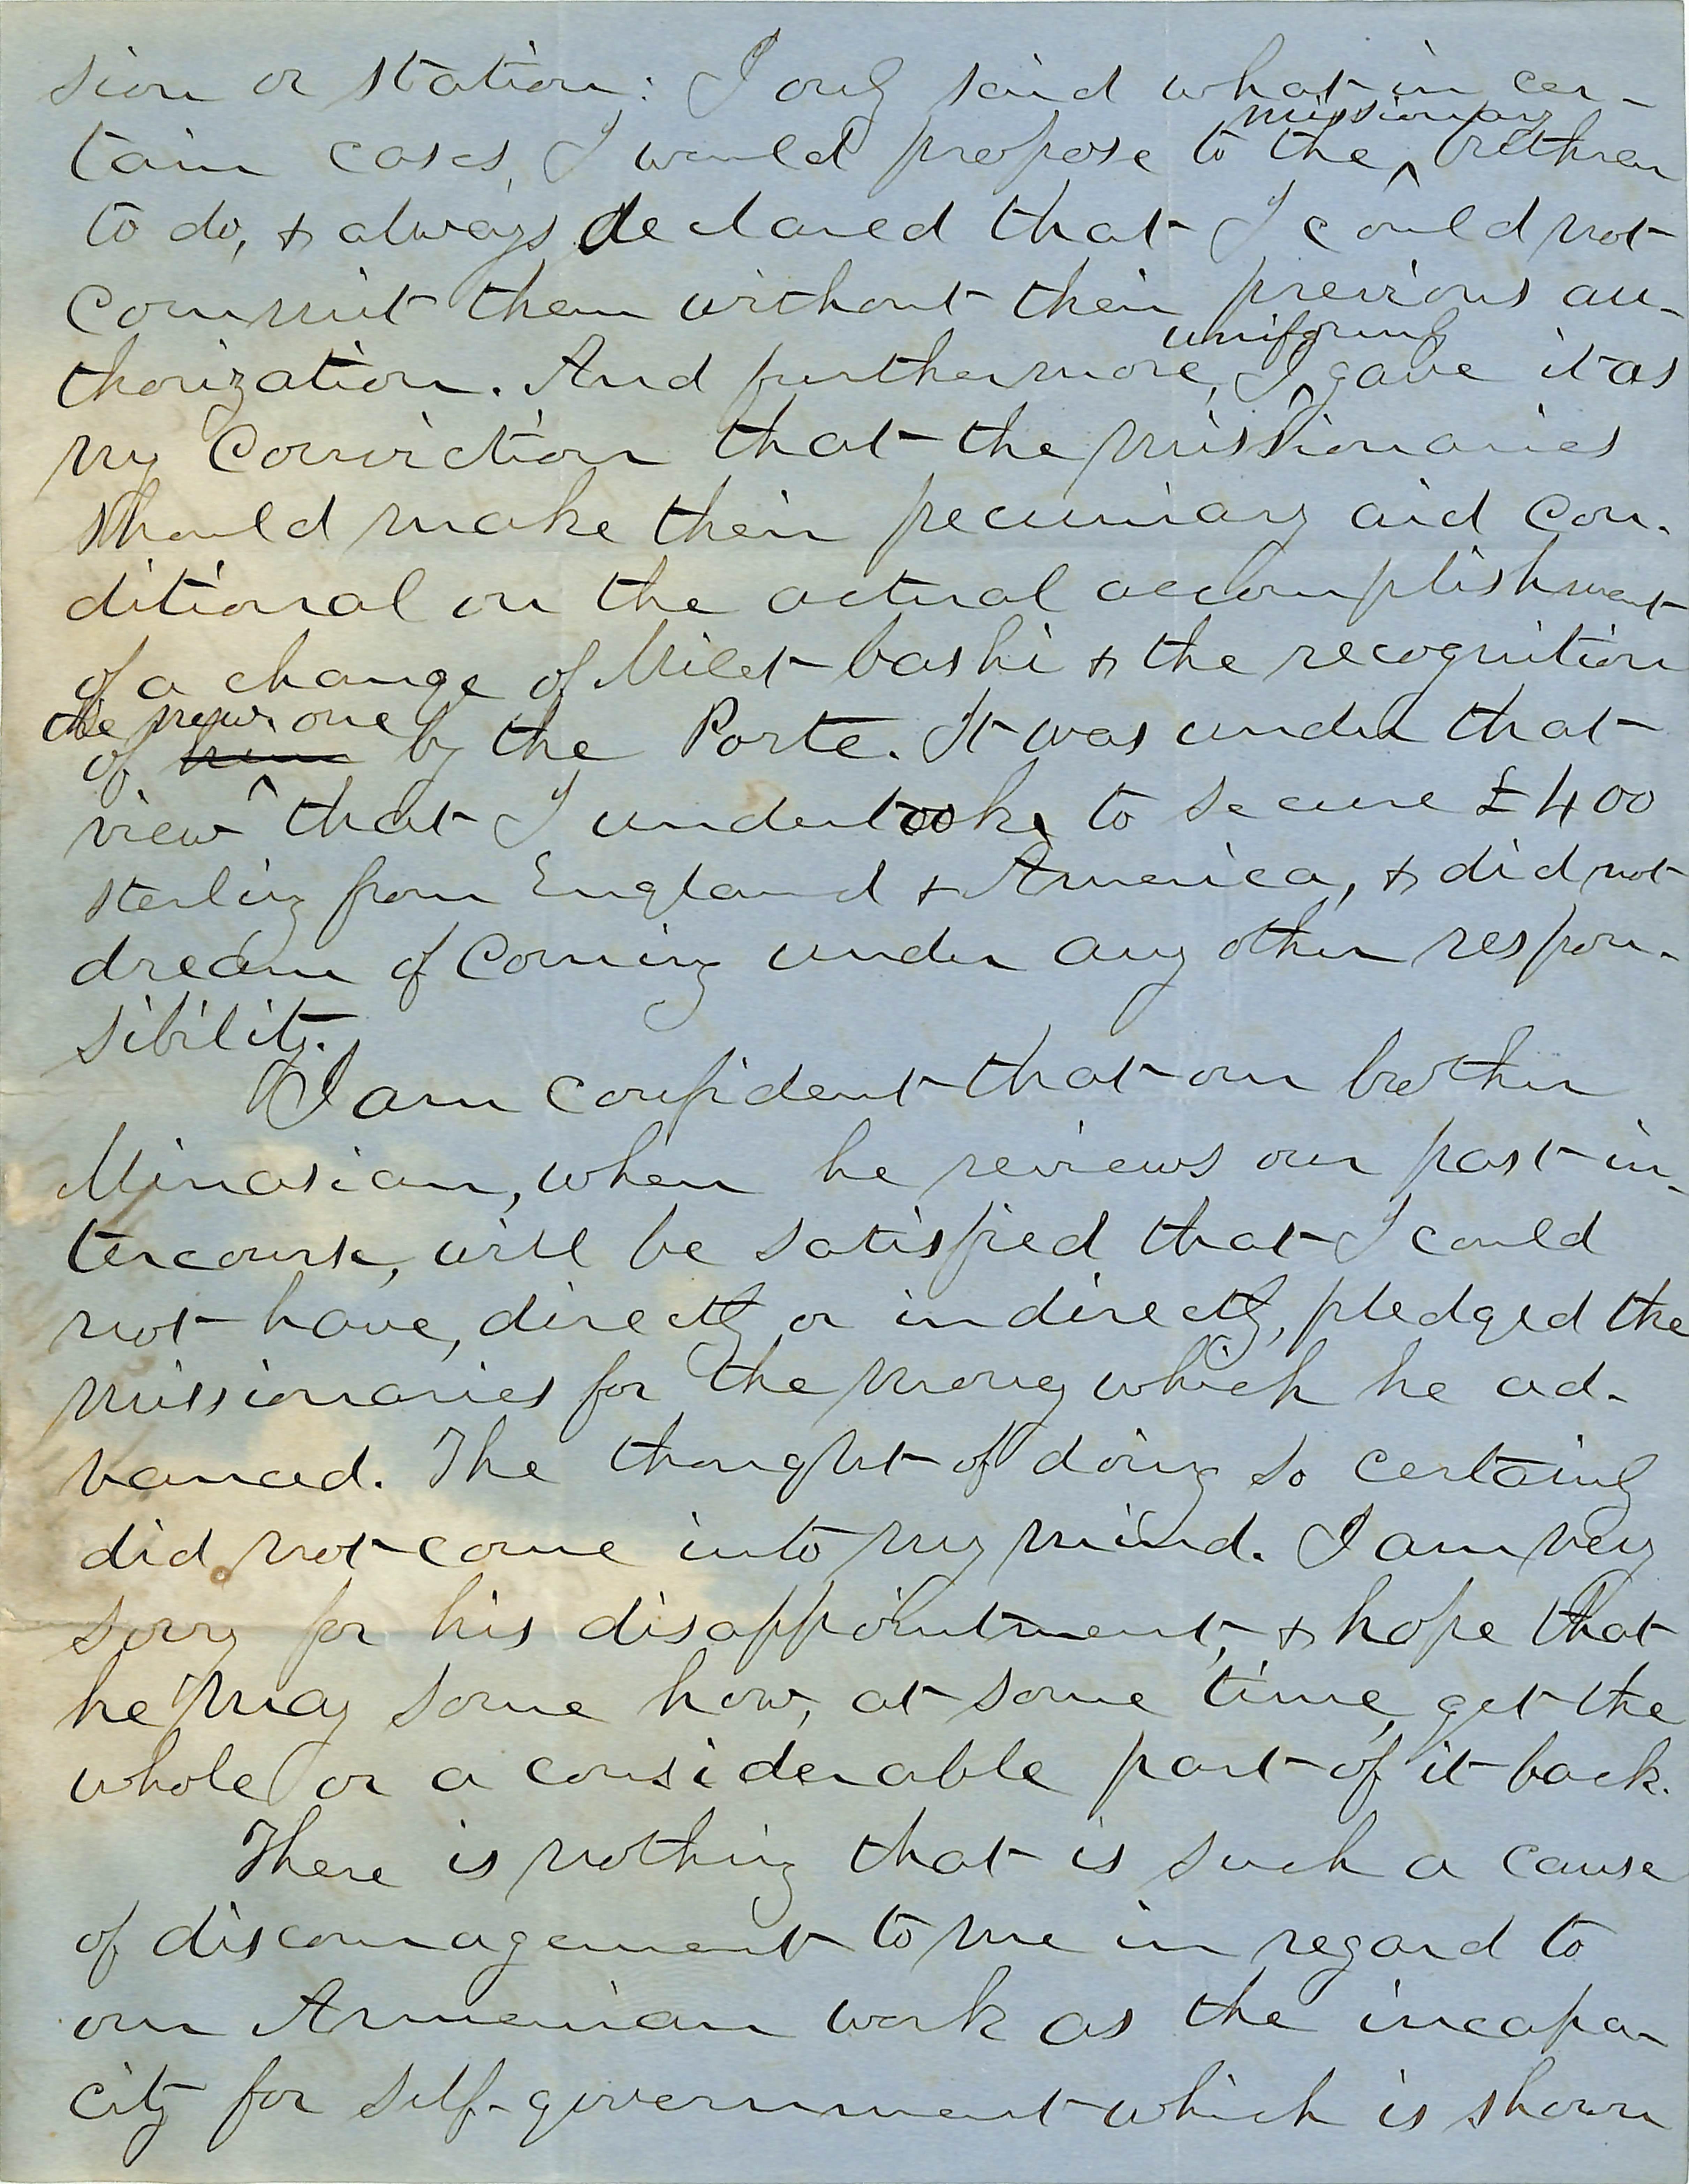 sion or station: I only said what in cer-
tain cases, I would propose to the missionary brethren
to do, & always declared that I could not
commit them without their previous au-
thorization. And furthermore, I uniformly gave it as
my conviction that the missionaries
should make their pecuniary aid con-
ditional on the actual accomplishment
of a change of Milet-bashi & the recognition
of him the new one by the Porte. It was under that
view that I undertook to secure £400
sterling from England & America, & did not
dream of coming under any other respon-
sibility.
I am confident that our brother
Minasian, when he reviews our past in-
tercourse, will be satisfied that I could
not have, directly or indirectly, pledged the
missionaries for the money which he ad-
vanced. The thought of doing so certainly
did not come into my mind. I am very
sorry for his disappointment, & hope that
he may some how, at some time, get the
whole or a considerable part of it back.
There is nothing that is such a cause
of discouragement to me in regard to
our Armenian work as the incapa-
city for self-government which is shown